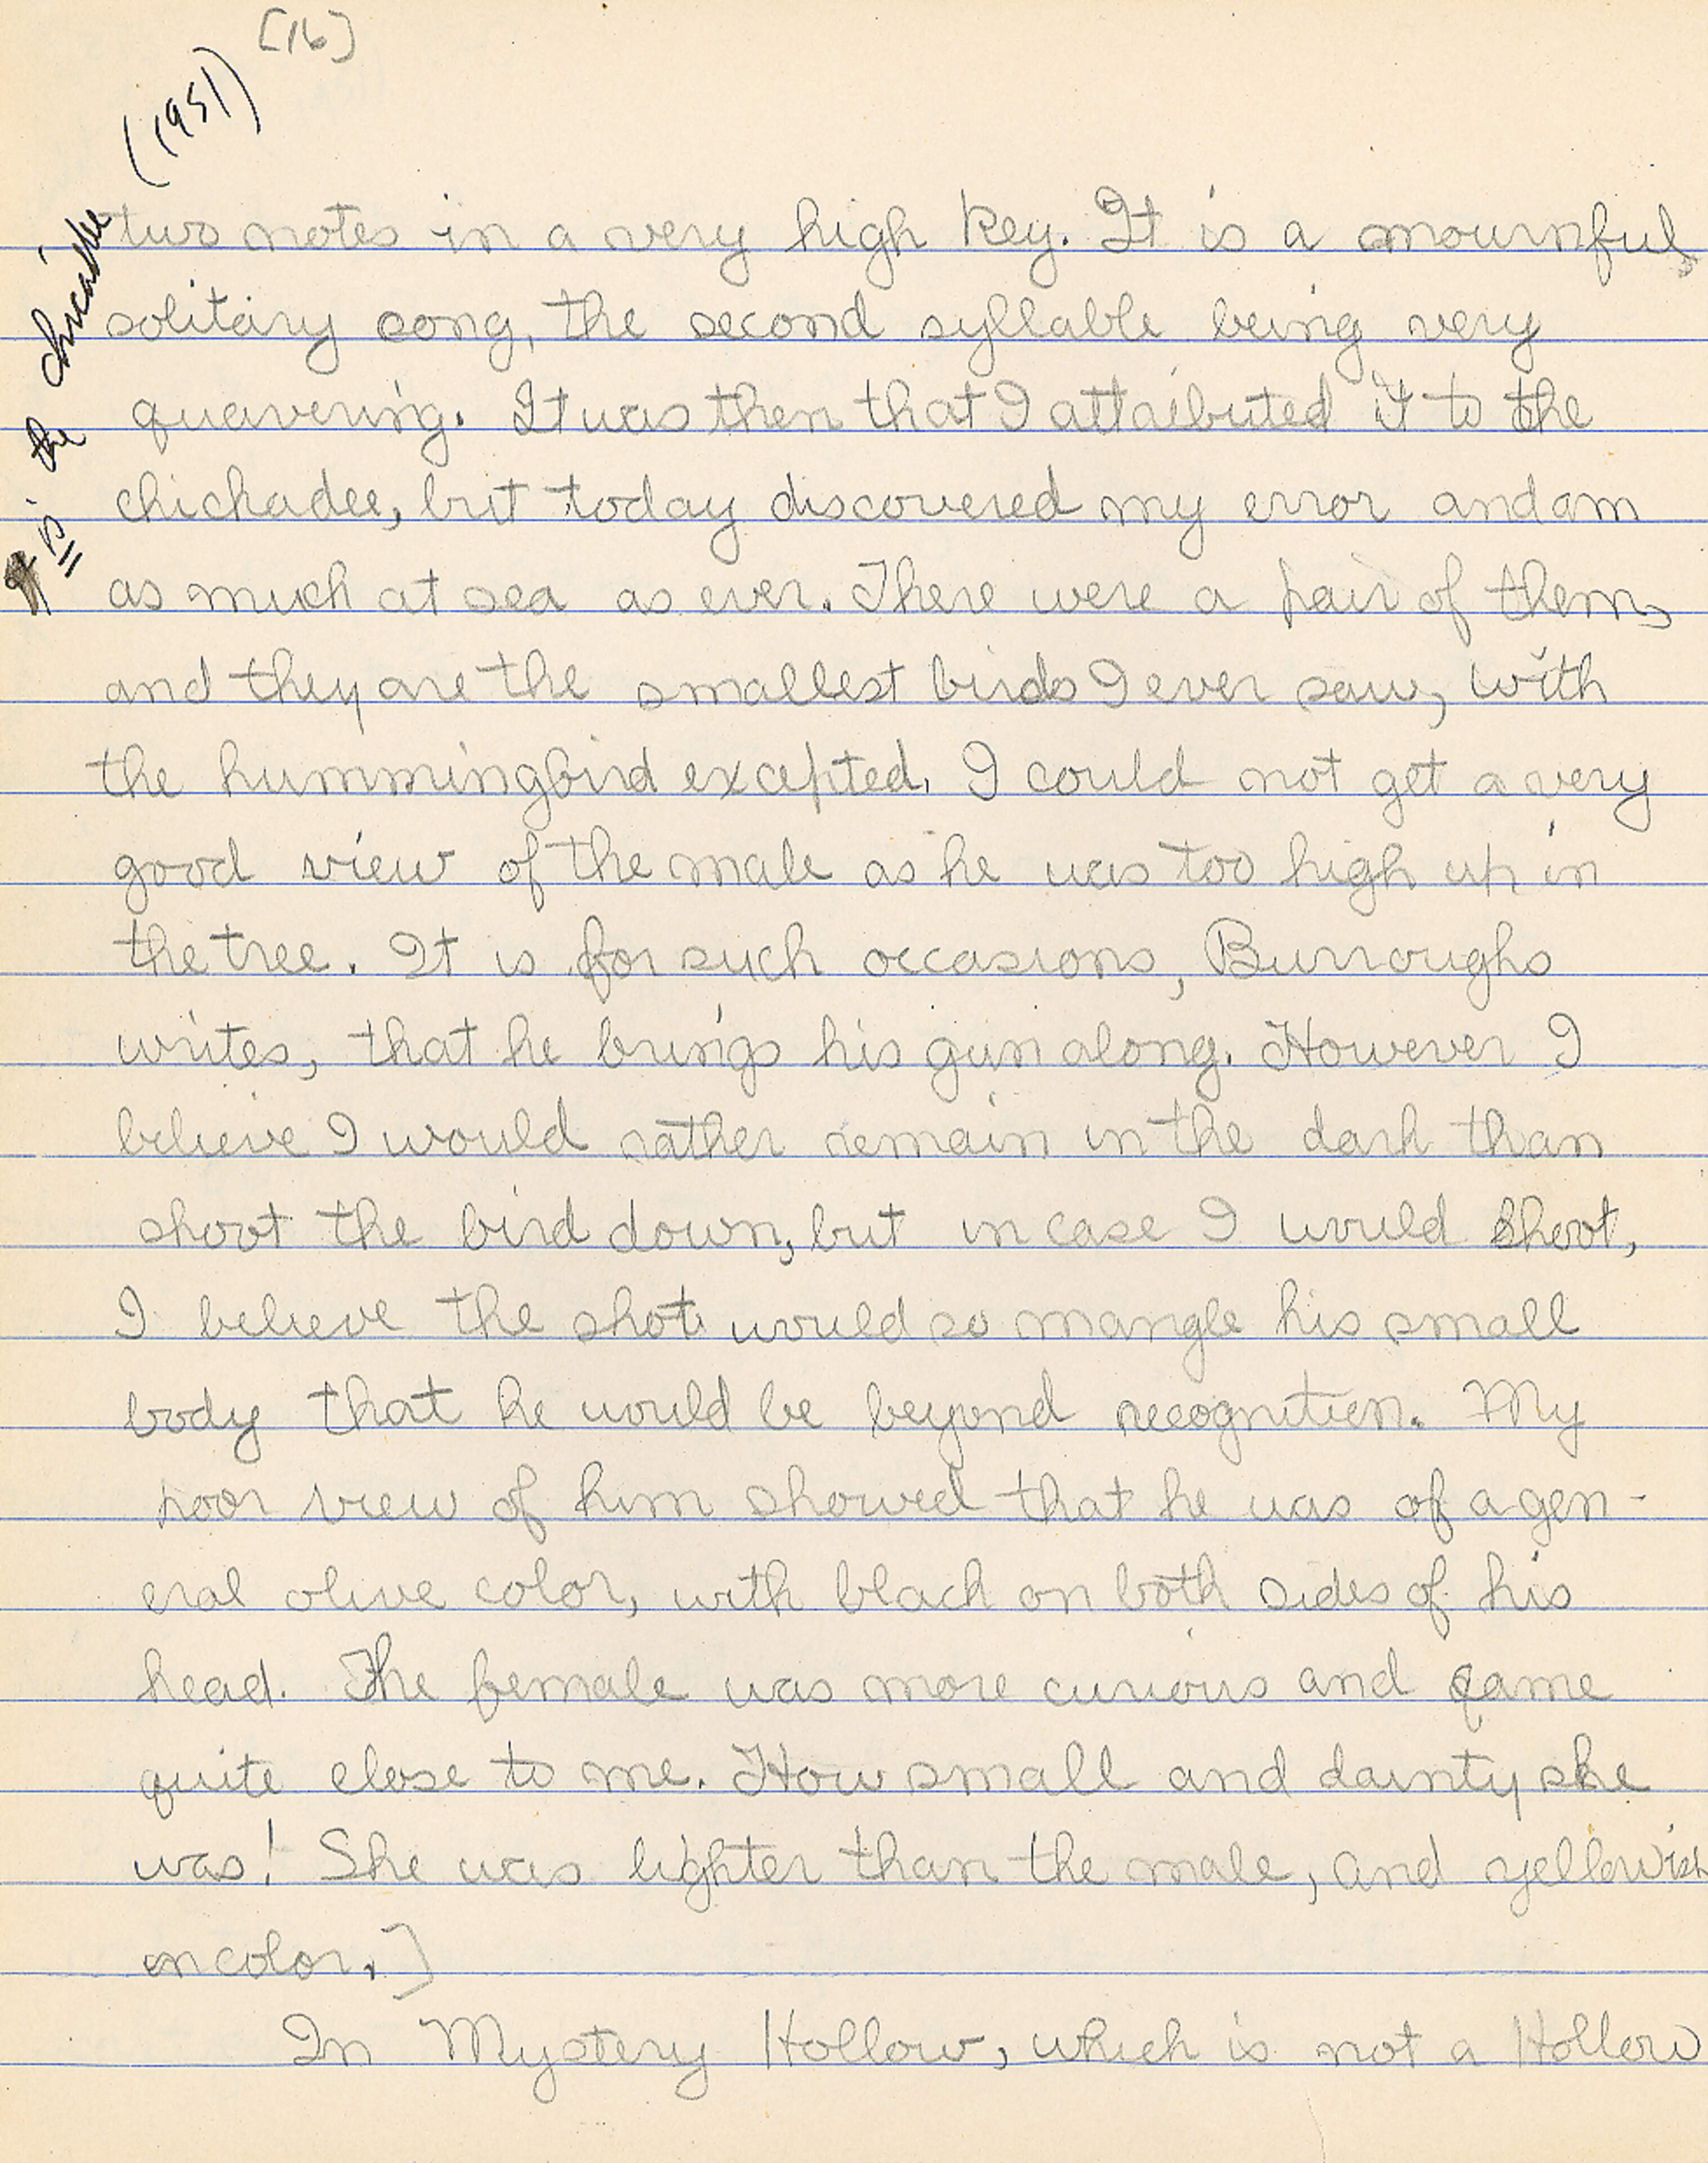 [16]
(1951)
It is the chicadee
two notes in a very high key. It is a mournful,
solitary song, the second syllable being very
quavering. It was then that I attributed it to the
chickadee, but today discovered my error and am
as much at sea as ever. There were a pair of them,
and they are the smallest birds I ever saw, with
the hummingbird excepted. I could not get a very
good view of the male as he was too high up in
the tree. It is for such occasions, Burroughs
writes, that he brings his gun along. However I
believe I would rather remain in the dark than
shoot the bird down, but in case I would shoot,
I believe the shot would so mangle his small
body that he would be beyond recognition. My
poor view of him showed that he was of a gen-
eral olive color, with black on both sides of his
head. The female was more curious and came
quite close to me. How small and dainty she
was! She was lighter than the male, and yellowish
in color.]
In Mystery Hollow, which is not a Hollow